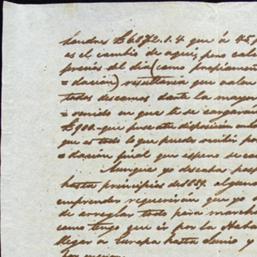 Londres £6872.1.4 que á 45
es el cambio de aqui; pero calc
pues del dia (como propiamen
=dacion) resultaria que valen
todos descamos darla la mayor
=venido en que te se cargarán
£900. que puse atu disposicion en
que es todo lo que puedo recibir por
=dacion final que espero se ea
Aunque yo deseaba pas
hasta principios de 1839. alguna
emprender requerirán que yo
de arreglar todo para march
como tengo que ir por la Haba
llegar a Europa hasta Junio y